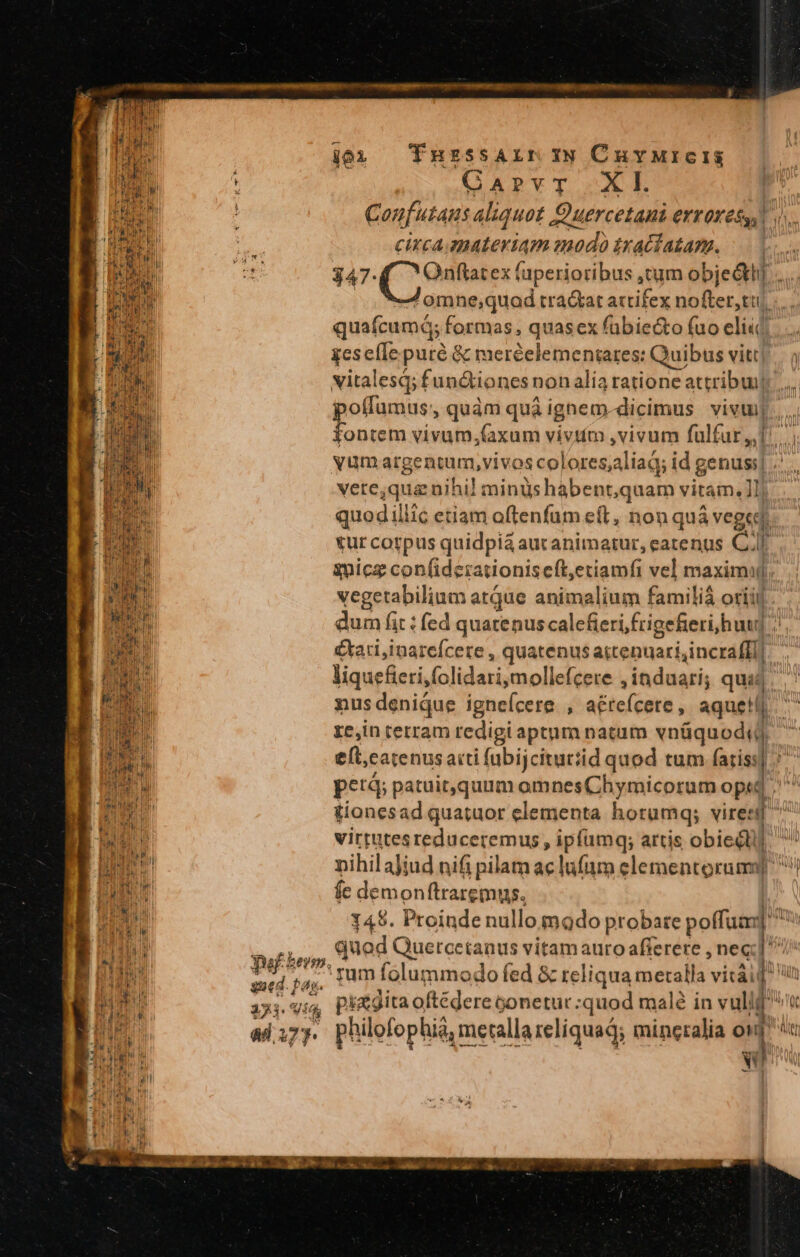 THESSALI IN CHYMICIS
CAPVT XI.
Confutans aliquot Quercetani errores,
circa materiam modò tractatam.
347. COnstat ex superioribus, tum obiect
omne, quod tractat artifex noster, tu
quascumq; formas, quas ex subiecto suo elic
ges esse purè & merè elementares: Quibus vit
vitalesq; functiones non alia ratione attribu
possumus, quàm quâ ignem dicimus vivum
fontem vivum, saxum vivum, vivum sulfur,
vum argentum, vivos colores, aliaq; id genus
vere, quæ nihil minùs habent, quam vitam.
quod illîc etiam ostensum est, non quâ vege
tur corpus quidpiã aut animatur, eatenus C
micæ considerationis est, etiamsi vel maxim
vegetabilium atque animalium familiâ oriu
dum sit: sed quatenus calefieri, frigefieri, hu
ctari, inarescere, quatenus attenuari, incras
liquefieri, solidari, mollescere, indurari; qua
nus denique ignescere, aërescere, aque
re, in terram redigi aptum natum vnũquod
est, eatenus arti subijcitur: id quod tum satis
perq; patuit, quum omnes Chymicorum op
tiones ad quatuor elementa horumq; vires
virtutes reduceremus, ipsumq; artis obiect
nihil aliud nisi pilam ac lusum elementorum
se demonstraremus.
348. Proinde nullo modo probare possum
quod Quercetanus vitam auro afferere, nec
rum solummodo sed & reliqua metalla vitâ
prædita ostẽdere conetur: quod malè in vul
philosophiâ, metalla reliquaq; mineralia
Def. herm.
med. pag.
ad 277.